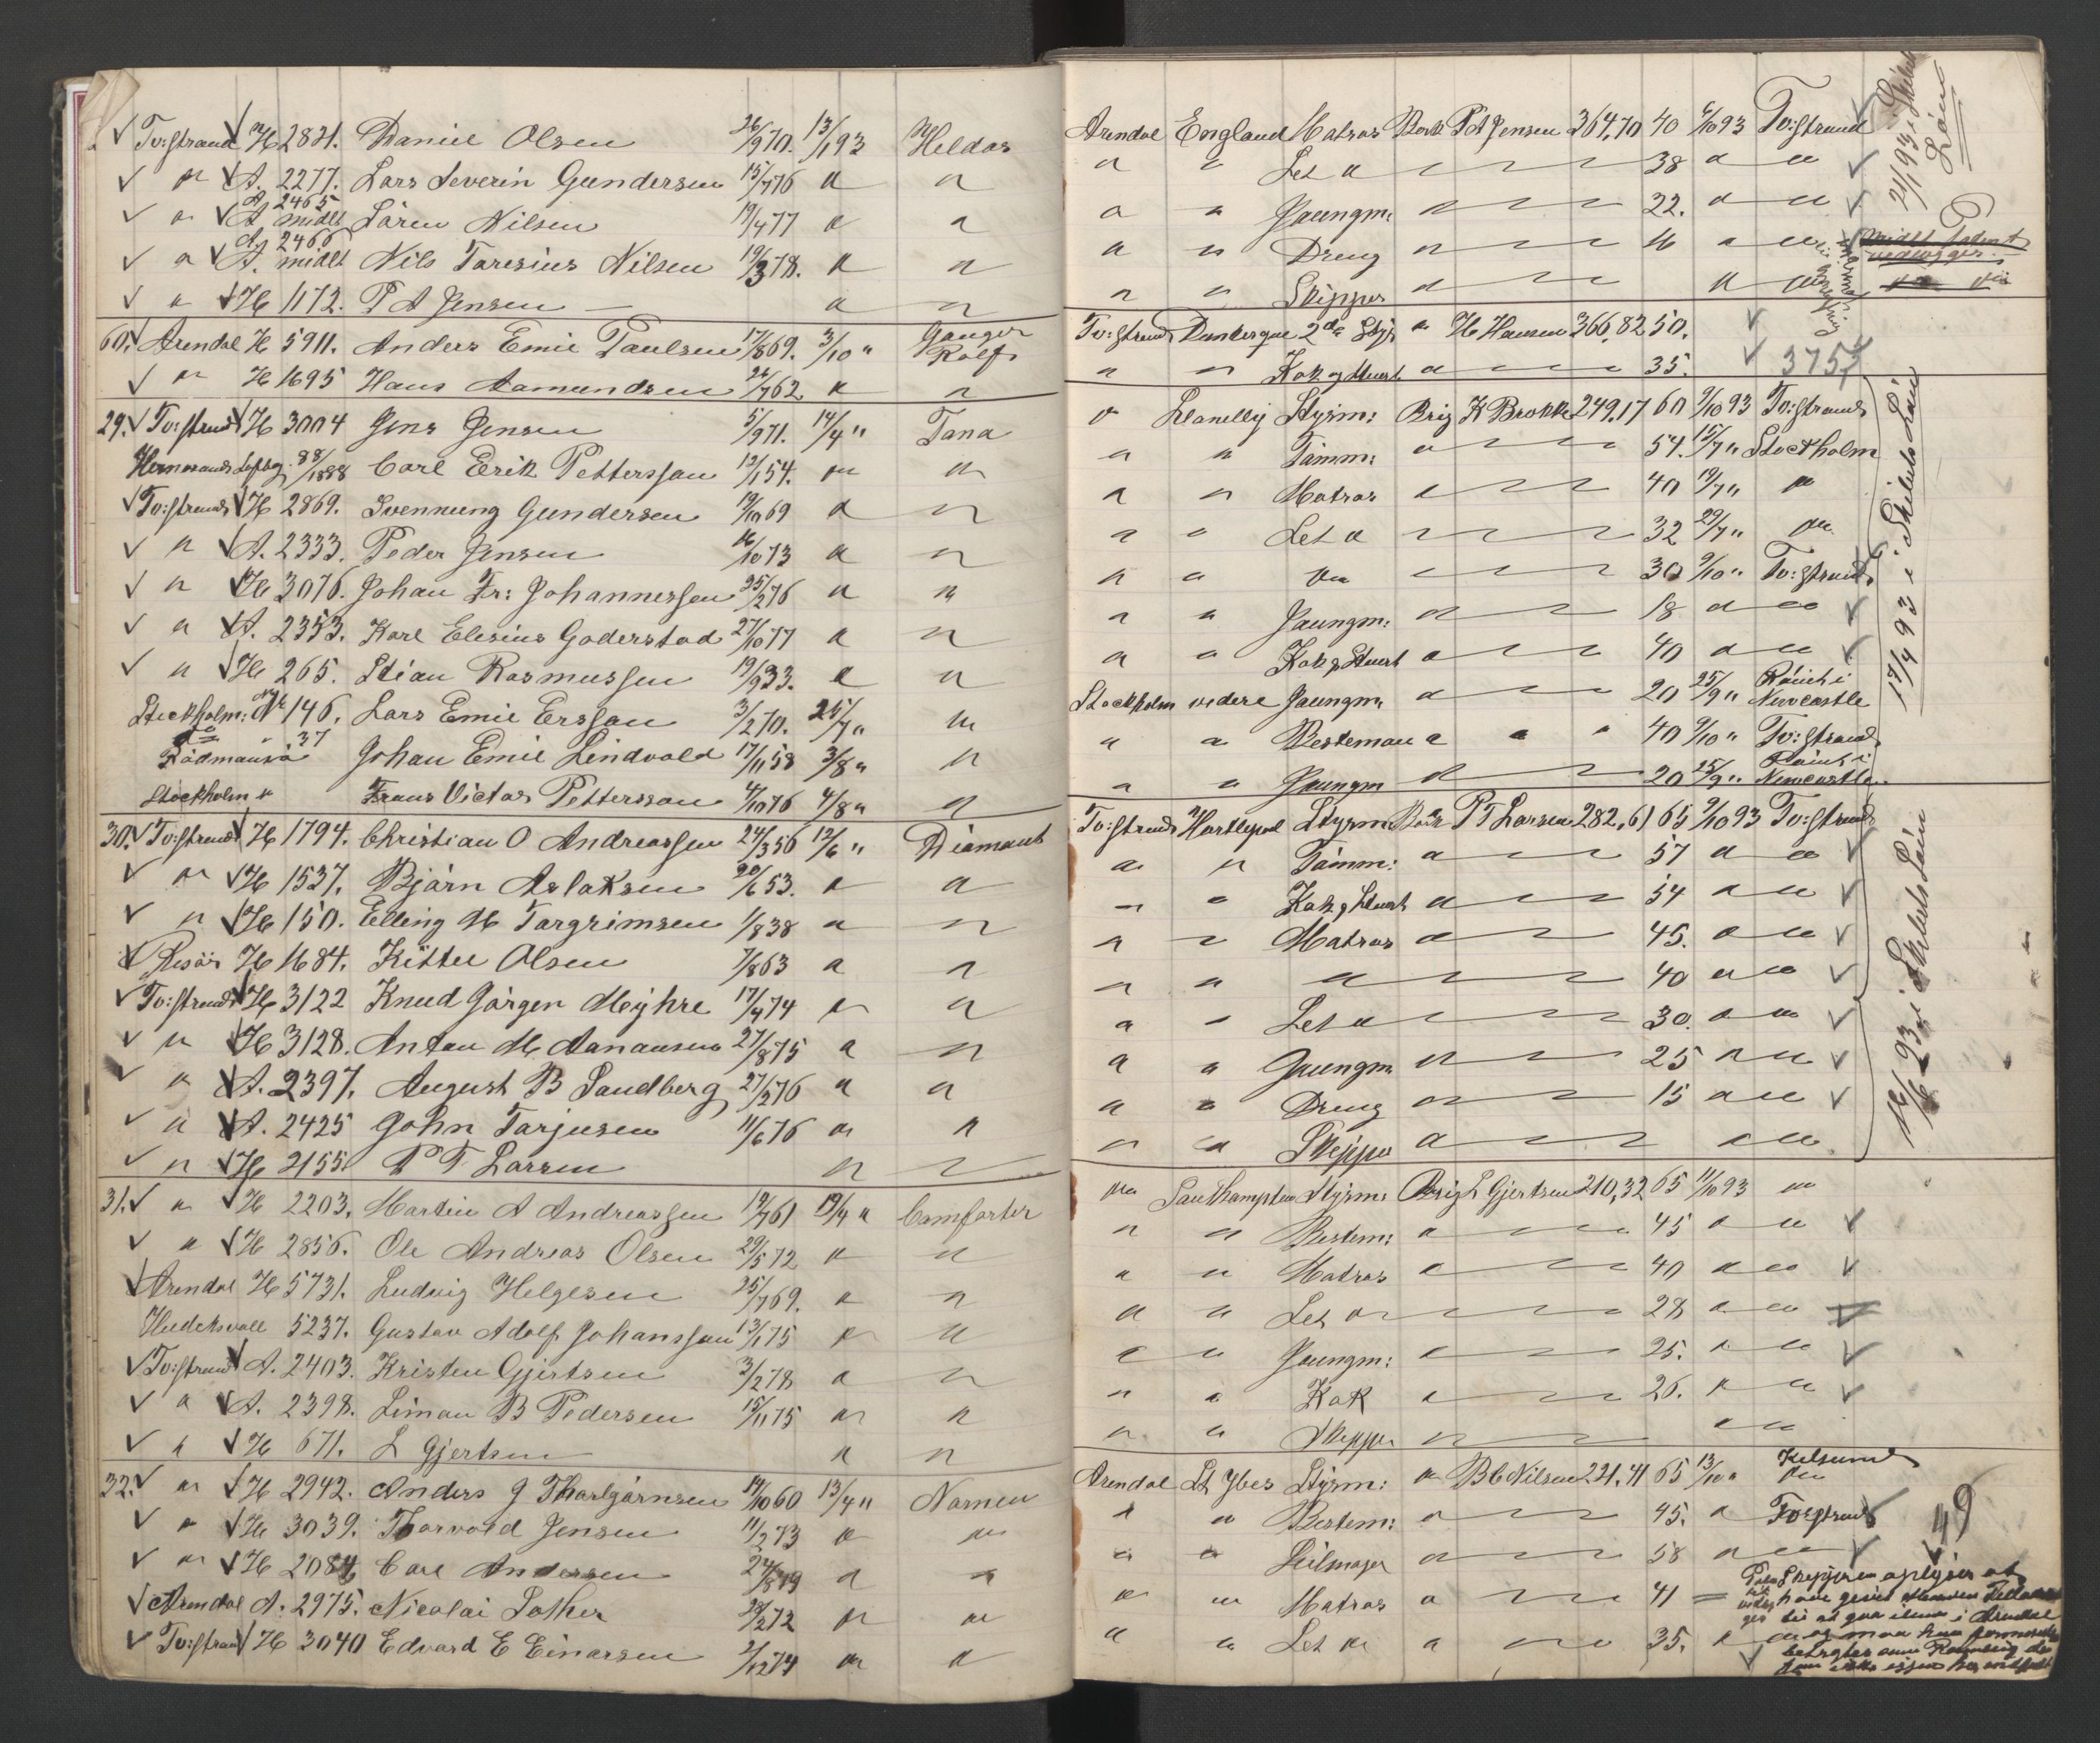 Tv:strand H 2821. Daniel Olsen 26/9 70. 13/1 93 Heldos
" A. 2277. Lars Severin Gundersen 15/7 76 " "
A 2465
" A midlt Sören Nilsen 19/4 77 " "
A. 2466
" A. midlt Nils Taresius Nilsen 19/3 78. " "
" H 1172. P A Jensen — " "
60. Arendal H 5911. Anders Emil Paulsen 17/8 69. 3/10 " Ganger Rolf
" H 1695 Hans Aamundsen 26/7 62 " "
29. Tv:strand H 3004 Jens Jensen 5/9 71. 14/4 " Tana
Hernosands 88/1888 Carl Erik Pettersson 12/1 54. " "
Tv:strand H 2869. Svennung Gundersen 19/10 69 " "
" A. 2333. Peder Jensen 16/10 73 " "
" H 3076. Johan Fr: Johannessen 25/2 76 " "
" A. 2353. Karl Elesius Goderstad 27/10 77 " "
" H 265. Stian Rasmussen 19/9 33. " "
Stockholm: No 146. Lars Emil Ersson 3/2 70. 25/7 " "
Rådmansö 37 Johan Emil Lindvald 17/11 58 3/8 " "
Stockholm " Frans Victor Pettersson 4/10 76 4/8 " "
30. Tv:strand H 1794. Christian O Andreassen 24/3 56 12/6 " Diamant
" H 1537. Bjørn Aslaksen 20/6 53. " "
" H 150. Elling M Torgrimsen 1/8 38 " "
Risör H 1684. Kittel Olsen 7/8 63 " "
Tv:strand H 3122 Knud Jörgen Myhre 17/4 74 " "
" H 3128. Anton M Aanansen 27/8 75 " "
" A. 2397. August B Sandberg 27/2 76 " "
" A. 2425 John Tarjusen 11/6 76 " "
" H 2155 P T Larsen " "
31. " H 2203. Martin A Andreassen 19/7 61 19/4 " Comforter
" H 2856. Ole Andreas Olsen 29/5 72 " "
Arendal H 5731. Ludvig Helgesen 25/7 69. " "
Hudiksvall 5237. Gustav Adolf Johansson 13/1 75 " "
Tv:strand A. 2403. Kristen Gjertsen 3/2 78 " "
" A. 2398. Simon B Pedersen 15/11 75 " "
" H 671. L Gjertsen " "
32. " H 2942. Anders G Thorbjørnsen 14/10 60 13/4 " Nornen
" H 3039. Thorvald Jensen 11/2 73 " "
" H 2084 Carl Andersen 24/8 49 " "
Arendal A. 2975. Nicolai Sother 28/2 72 " "
Tv:strand H 3040 Edvard E Einarsen 2/12 74 " "
Arendal England Matros Bark P A Jensen 364,70 40 6/10 93 Tv:strand
" " Let " 38 " "
" " Jungm: " 22. " "
" " Dreng " 16 " "
" " Skipper " " "
21/1 93 i Skibets Lön
Tv:strand Dunkerque 2de Styr " H Hansen 366,82 50.
" " Kok og Stuert " 35. 3757
" Llanelly Styrm: Brig K Brokke 249,17 60 9/10 93 Tv:strand
" " Tömm: " 54. 15/7 " Stockholm
" " Matros " 40 19/7 " "
" " Let " 32 29/7 " "
" " " 30 9/10 " Tv:strand
" " Jungm: " 18 " "
" " Kok og Stuert " 40 " "
Stockholm videre Jungm " 20 25/9 " Römt i Newcastle
" " Bestemand " " " 40 9/10 " Tv:strand
" " Jungm " 20 25/9 " Römt i Newcastle
17/4 93 i Skibets Lön
Tv:strand Hartlepool Styrm Bark P T Larsen 282,61 65 9/10 93 Tv:strand
" " Tömm: " 57 " "
" " Kok og Stuert " 54 " "
" " Matros " 45. " "
" " " " 40 " "
" " Let " 30. " "
" " Jungm " 25 " "
" " Dreng " 15 " "
" " Skipper " " "
16/6 93 i Skibets Lön
" Southampton Styrm: Brig L Gjertsen 210,32 65 11/10 93 "
" " Bestem: " 45 " "
" " Matros " 40 " "
" " Let " 28 " "
" " Jungm: " 25. " "
" " Kok " 26. " "
" " Skipper " " "
Arendal St Ybes Styrm: " B C Nilsen 221,41 65 13/10 " Kilsund
" " Bestem: " 45. " Tv:strand
" " Seilmager " 58 " "
" " Matros " 41
" " Let " " 35. " "
49
Skipperen oplyser at